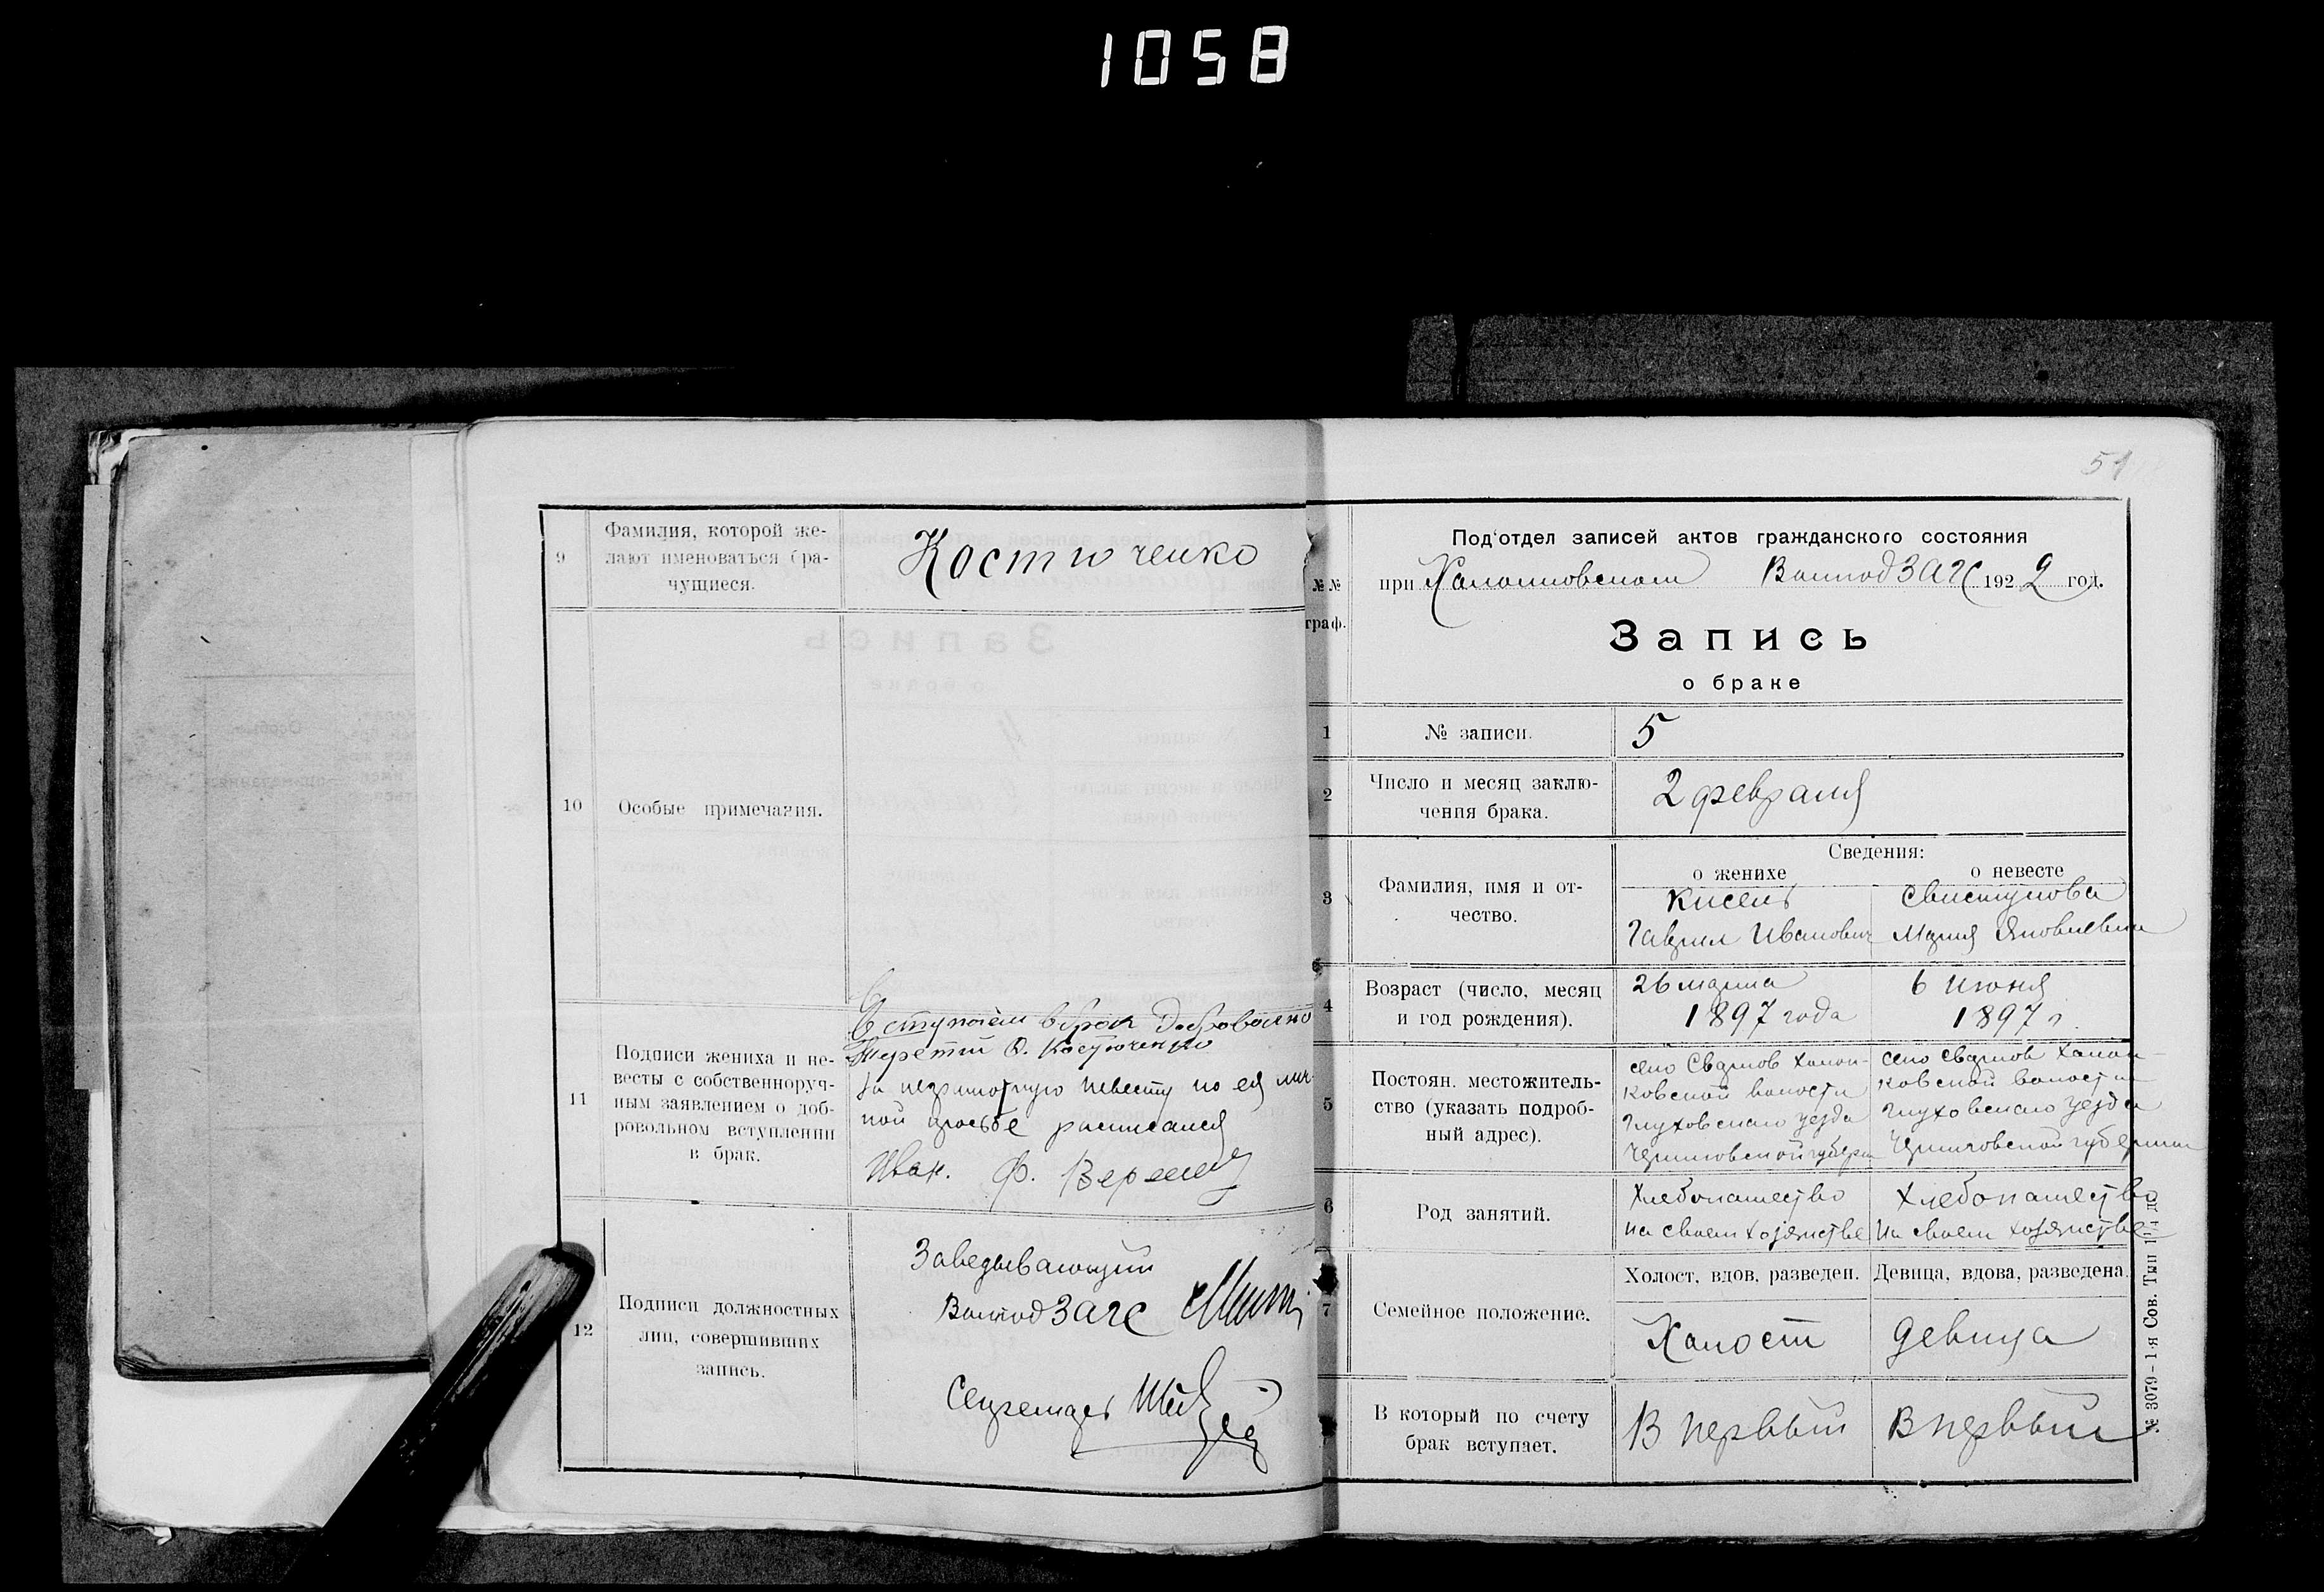 1058
9
Фамилия, которой же-
лают именоваться бра-
чущиеся.
Костюченко
10
Особые примечания.
11
Подписи жениха и не-
весты с собственноруч-
ным заявлением о доб-
ровольном вступлении
в брак.
Вступаем в брак добровольно
Теретий Костюченко
За неграмотную невесту по ея лич-
ной просьбе расписался
Иван. Ф.
12
Подписи должностных
лиц, совершивших
запись.
Заведывающий
ВолподЗАГС
Секретарь
51
Под'отдел записей актов гражданского состояния
№№
граф.
при ВолподЗАГС 1922 год.
Запись
о браке
1
№ записи.
5
2
Число и месяц заклю-
чения брака.
2 февраля
Сведения:
о женихе
о невесте
3
Фамилия, имя и от-
чество.
Кисель
Гаврил Иванович
Свистунова
Мария Яковлевна
4
Возраст (число, месяц
и год рождения).
26 марта
1897 года
6 июня
1897 г.
5
Постоян. местожитель-
ство (указать подроб-
ный адрес).
село Свдрнов
ковской волости
Глуховскаго уезда
Черниговской губерн
село
ковской волости
Глуховскаго уезда
Черниговской губернии
6
Род занятий.
Хлебопашество
на своем хозяистве
Хлебопашество
На своем хозяистве
7
Семейное положение.
Холост, вдов, разведен.
Девица, вдова, разведена.
Холост
девица
В который по счету
брак вступает.
В первый
В первый
№ 3079 - 1-я Сов. Тип